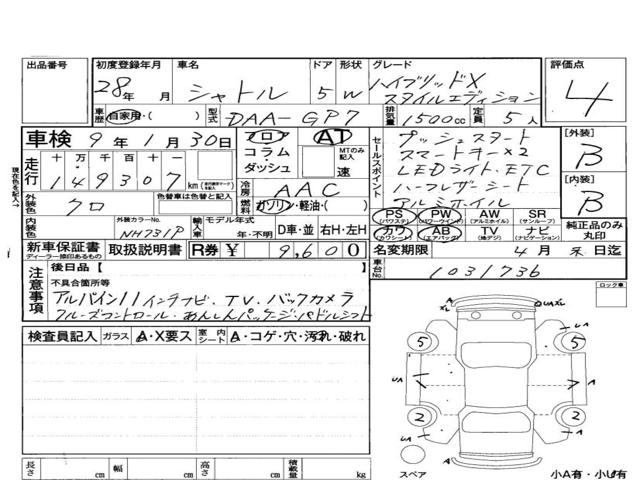 出品番号 初度登録年月 車名 ドア 形状 グレード 評価点
28年 月 シャトル 5 W ハイブリッドX スタイルエディション 4
車歴 自家用・( ) 型式 DAA-GP7 排気量 1500cc 定員 5人
車検 9年 1月 30日 フロア コラム・ダッシュ AT MTのみ記入 速
セールスポイント プッシュスタート
スマートキー×2
LEDライト. ETC
ハーフレザーシート
アルミホイル
[外装] B
[内装] B
走行 十 万 千 百 十 一
149307 km
現在色を記入→
外装色 クロ 色替車は色替と記入 冷房 AAC
燃料 ガソリン・軽油・( )
内装色 外装カラーNo. NH731P 輸入車 モデル年式 年・不明 D車・並 右H・左H
PS (パワステ) PW (パワーウインド) AW (アルミホイル) SR (サンルーフ)
カワ (カワシート) AB (エアバック) TV (地デジ) ナビ (ナビゲーション)
純正品のみ丸印
新車保証書 ディーラー捺印あるもの 取扱説明書 R券 ¥ 9,600 名変期限 4月 末日迄
注意事項 後日品【 】 車台No. 1031736
不具合箇所等
アルパイン11インチナビ. TV. バックカメラ
クルーズコントロール. あんしんパッケージ. パドルシフト
ロック車
検査員記入 ガラス A・X要ス 室内シート A・コゲ・穴・汚れ・破れ
A XL UA XL
5 5
UA A
UA A
2 2
UA
A
スペア 小A有・小U有
長さ cm 幅 cm 高さ cm 積載量 kg